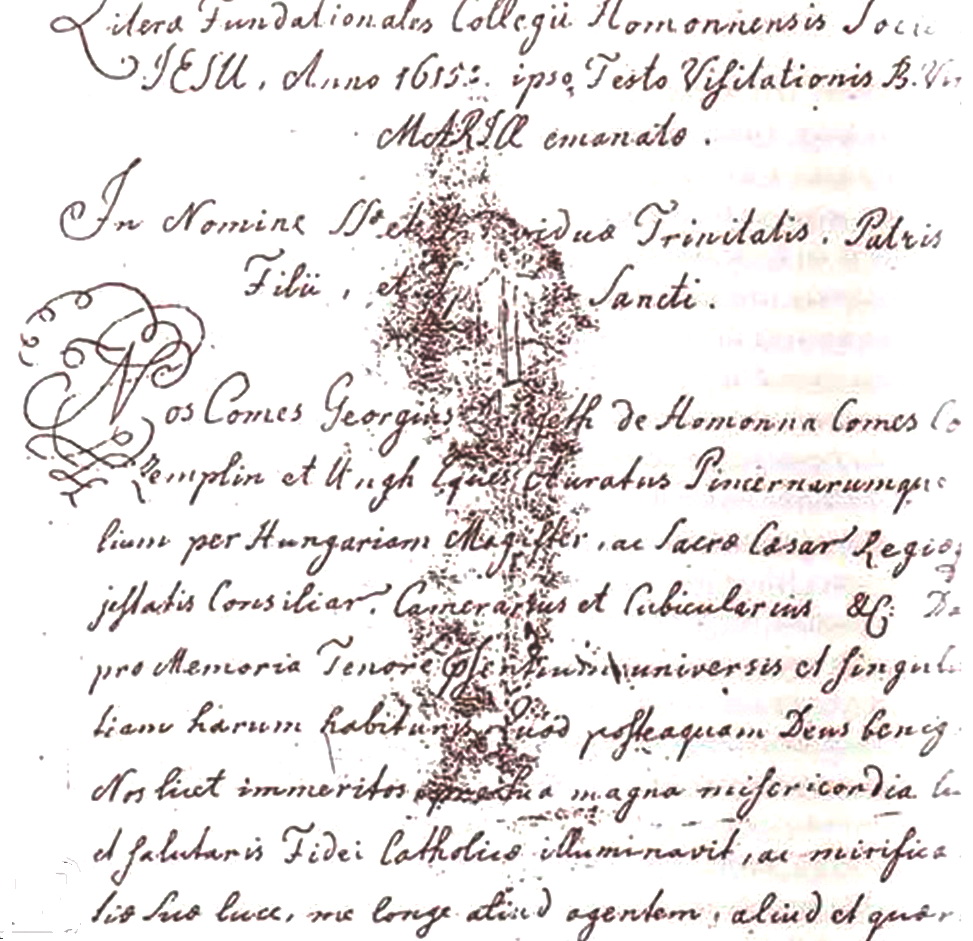 Literæ Fundationales Collegii Homonnensis Socie
JESU, Anno 1615: ipso Festo Visitationis B. Vir
MARIÆ emanatæ.
In Nomine SSæ et iduæ Trinitatis. Patris
Filii, et Sancti.
Nos Comes Georgius de Homonna Comes Co
Zemplin et Ungh Eques Auratus Pincernarumque
lium per Hungariam Magister, ac Sacræ Cæsar Regiæq
jestatis Consiliar. Camerarius et Cubicularius &c: Da
pro Memoria Tenore psentium universis et singulis
tiam harum habituris. Quod posteaquam Deus benig
Nos licet immeritos pro sua magna misericordia lu
et salutaris Fidei Catholicæ illuminavit, ac mirifica
tiæ suæ luce, me longe aliud agentem, aliud et quær